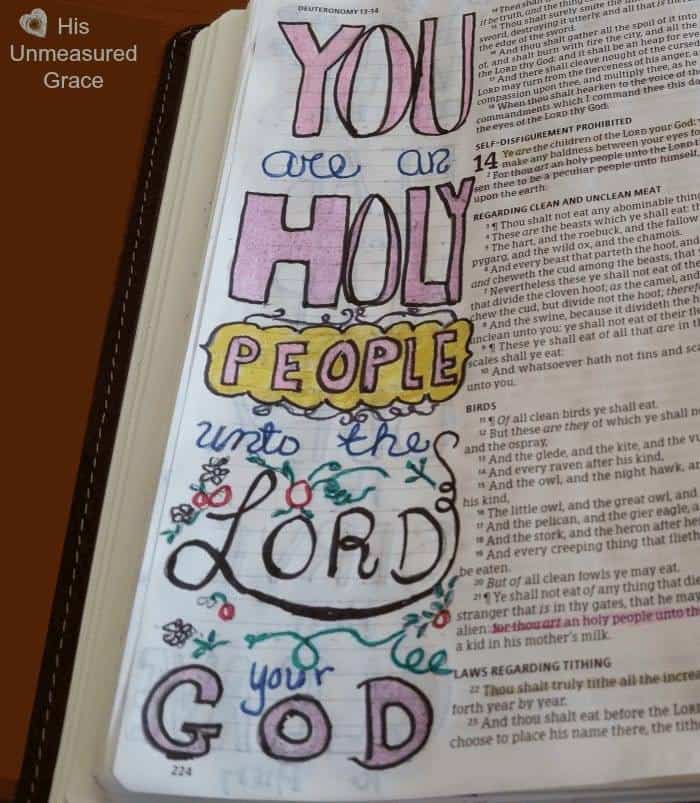 His
Unmeasured
Grace
DEUTERONOMY 13-14
YOU
are an
HOLY
PEOPLE
unto the
LORD
your
GOD
224
14 Then shal
it be truth, and the thing
15 Thou shalt surely smite the
sword, destroying it utterly, and all that is the
the edge of the sword.
16 And thou shalt gather all the spoil of it into
of, and shalt burn with fire the city, and all the
the LORD thy God: and it shall be an heap for eve
17 And there shall cleave nought of the curse
LORD may turn from the fierceness of his anger, a
compassion upon thee, and multiply thee, as he
18 When thou shalt hearken to the voice of th
commandments which I command thee this da
the eyes of the LORD thy God.
SELF-DISFIGUREMENT PROHIBITED
14 Ye are the children of the LORD your God:
make any baldness between your eyes
2 For thou art an holy people unto the LORD
sen thee to be a peculiar people unto himself,
upon the earth.
REGARDING CLEAN AND UNCLEAN MEAT
3 ¶ Thou shalt not eat any abominable thing
4 These are the beasts which ye shall eat: th
5 The hart, and the roebuck, and the fallow
pygarg, and the wild ox, and the chamois.
6 And every beast that parteth the hoof, and
and cheweth the cud among the beasts, that
7 Nevertheless these ye shall not eat of the
that divide the cloven hoof; as the camel, and
chew the cud, but divide not the hoof; theref
8 And the swine, because it divideth the h
unclean unto you: ye shall not eat of their fl
9 ¶ These ye shall eat of all that are in
scales shall ye eat:
10 And whatsoever hath not fins and sca
unto you.
BIRDS
11 ¶ Of all clean birds ye shall eat.
12 But these are they of which ye shall n
and the ospray,
13 And the glede, and the kite, and the vu
14 And every raven after his kind,
15 And the owl, and the night hawk, a
his kind,
16 The little owl, and the great owl, and
17 And the pelican, and the gier eagle, a
18 And the stork, and the heron after he
19 And every creeping thing that flieth
be eaten.
20 But of all clean fowls ye may eat.
21 ¶ Ye shall not eat of any thing that di
stranger that is in thy gates, that he may
alien: for thou art an holy people unto th
a kid in his mother's milk.
LAWS REGARDING TITHING
22 Thou shalt truly tithe all the increa
forth year by year.
23 And thou shalt eat before the LORD
choose to place his name there, the tith